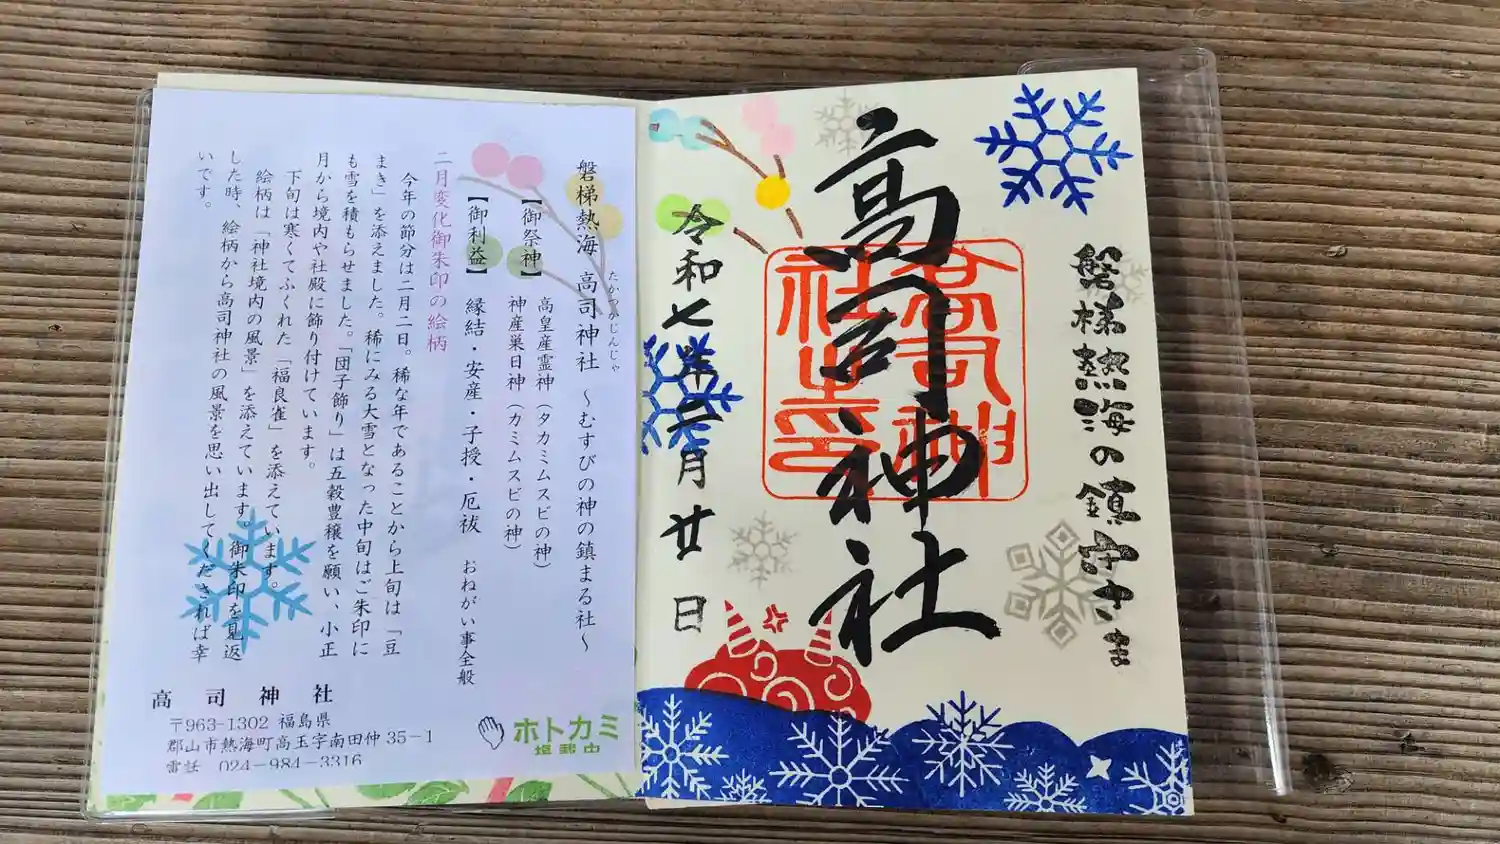 磐梯熱海の鎮守さま
高司神社
高司神
社之印
令和七年二月廿日
磐梯熱海 高司神社 ～むすびの神の鎮まる社～
たかつかじんじゃ
【御祭神】 高皇産霊神(タカミムスビの神)
神産巣日神(カミムスビの神)
【御利益】 縁結・安産・子授・厄祓 おねがい事全般
二月変化御朱印の絵柄
今年の節分は二月二日。稀な年であることから上旬は「豆
まき」を添えました。稀にみる大雪となった中旬はご朱印に
も雪を積もらせました。「団子飾り」は五穀豊穣を願い、小正
月から境内や社殿に飾り付けています。
下旬は寒くてふくれた「福良雀」を添えています。
絵柄は「神社境内の風景」を添えています。御朱印を見返
した時、絵柄から高司神社の風景を思い出してくだされば幸
いです。
高司神社
〒963-1302 福島県
郡山市熱海町高玉字南田仲 35-1
電話 024-984-3316
ホトカミ
掲載中